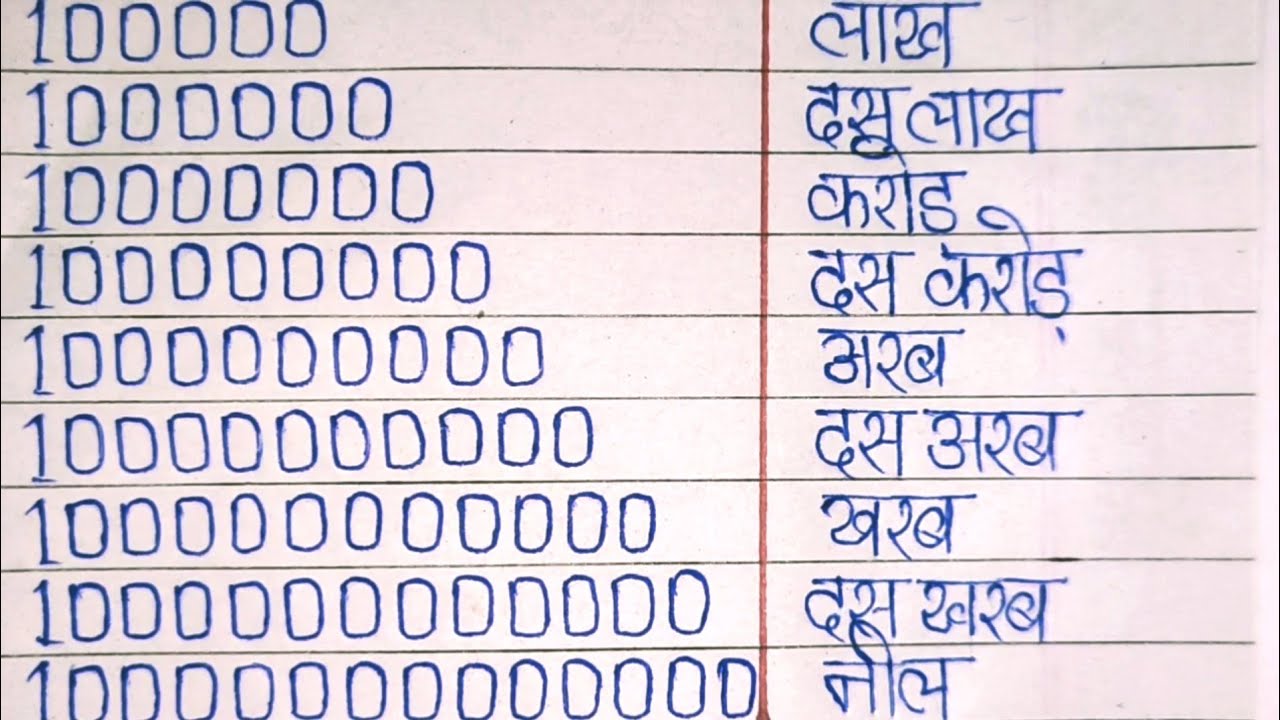 100000 लाख
1000000 दस लाख
10000000 करोड
100000000 दस करोड़
1000000000 अरब
10000000000 दस अरब
100000000000 खरब
1000000000000 दस खरब
10000000000000 नील